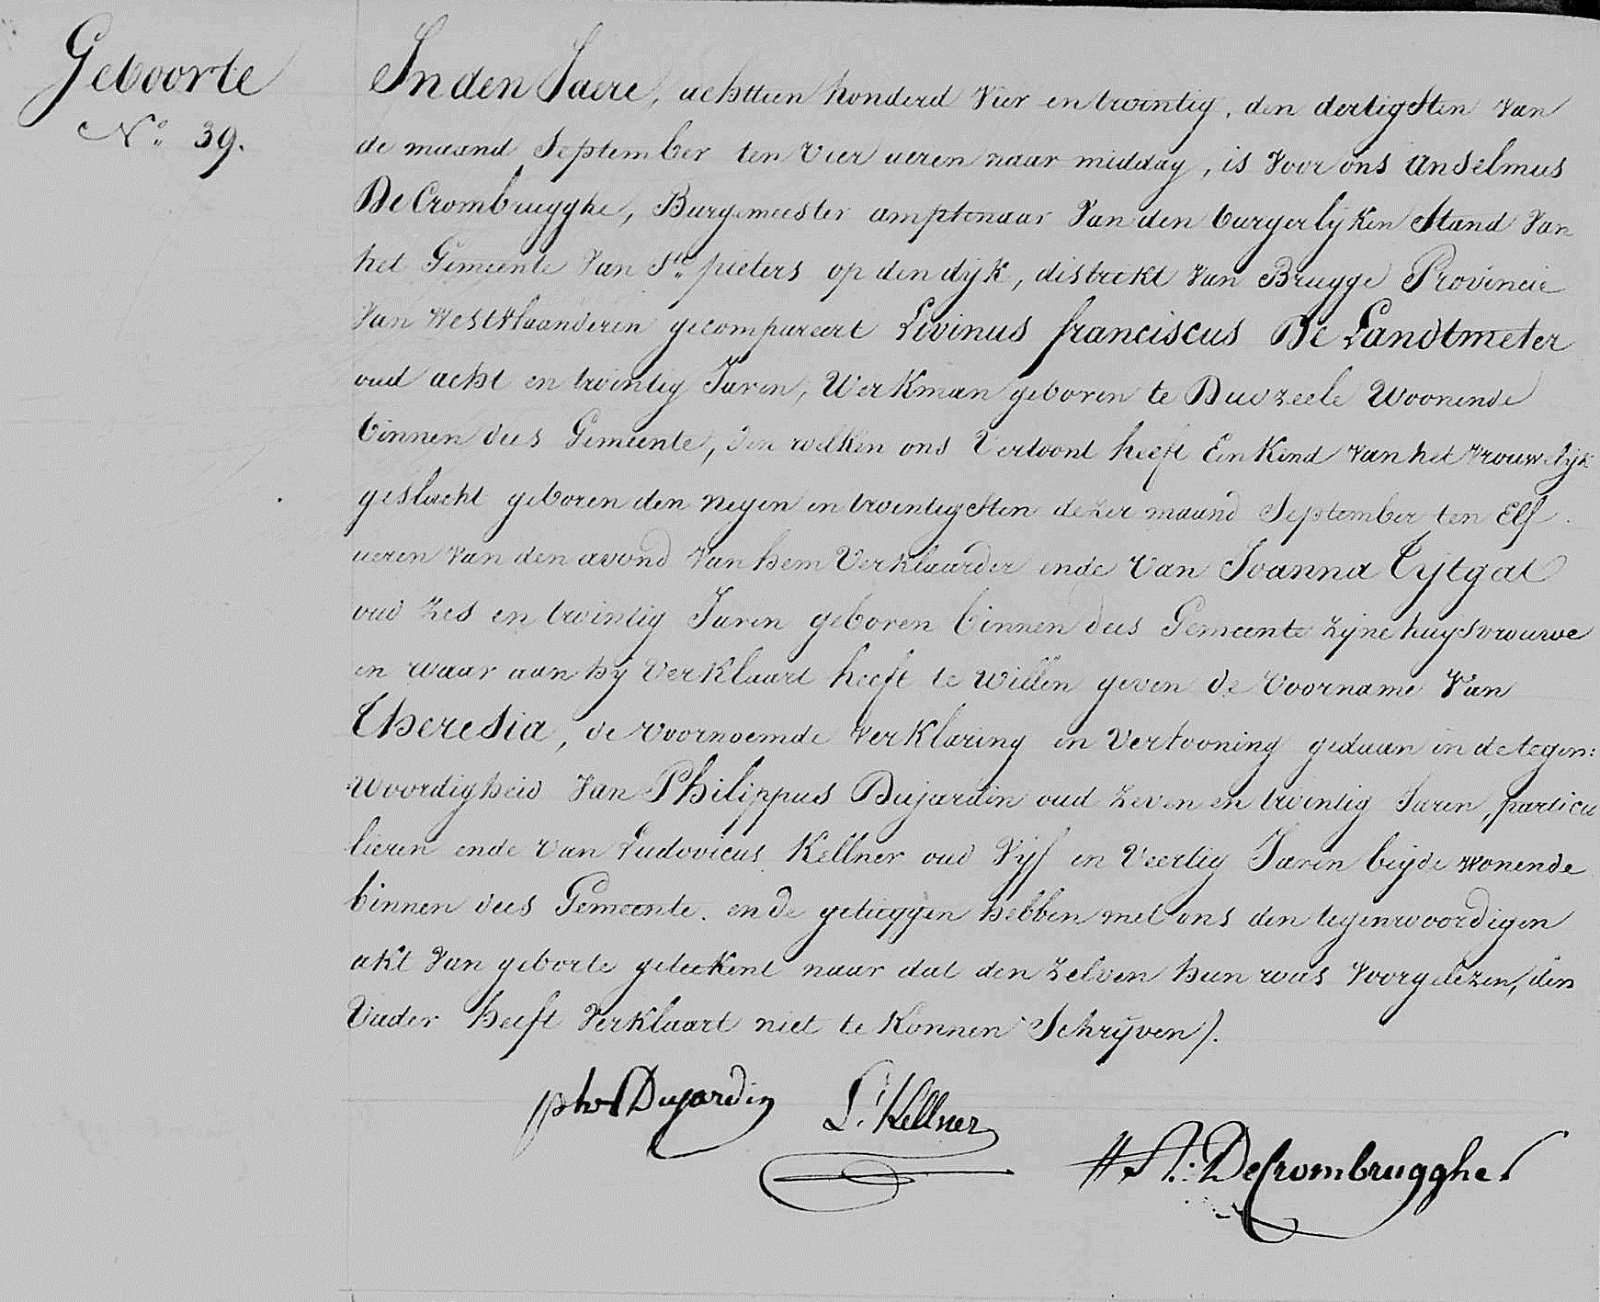 Geboorte
N.o 39.
In den Jaere, achttien honderd Vier en twintig, den dertigsten Van
de maand September ten Vier ueren naar middag, is Voor ons Anselmus
De Crombrugghe, Burgemeester amptenaar Van den burgerlijken Stand Van
het Gemeente Van St. pieters op den dijk, distrekt Van Brugge Provincie
Van Westvlaanderen gecompareert Livinus franciscus De Landtmeter
oud acht en twintig Jaren, Werkman geboren te Dudzeele Woonende
binnen dees Gemeente, den welken ons Vertoont heeft Een Kind Van het Vrouwelijk
geslacht geboren den negen en twintigsten dezer maand September ten Elf
ueren Van den avond Van hem Verklaarder ende Van Joanna Tytgat
oud Zes en twintig Jaren geboren binnen dees Gemeente zijne huysvrouwe
en waar aan hij Verklaart heeft te Willen geven de Voorname Van
Theresia, de voornoemde Verklaring en Vertooning gedaan in de tegen:
Woordigheid Van Philippus Dujardin oud Zeven en twintig Jaren, particu
lieren ende Van Ludovicus Kellner oud Vijf en Veertig Jaren beijde wonende
binnen dees Gemeente. ende getuggen hebben met ons den tegenwoordigen
akt Van geborte geteekent naar dat den Zelven hun was Voorgelezen, den
Vader heeft Verklaart niet te Konnen Schrijven).
phus Dujardin L. Kellner
A: DeCrombrugghe